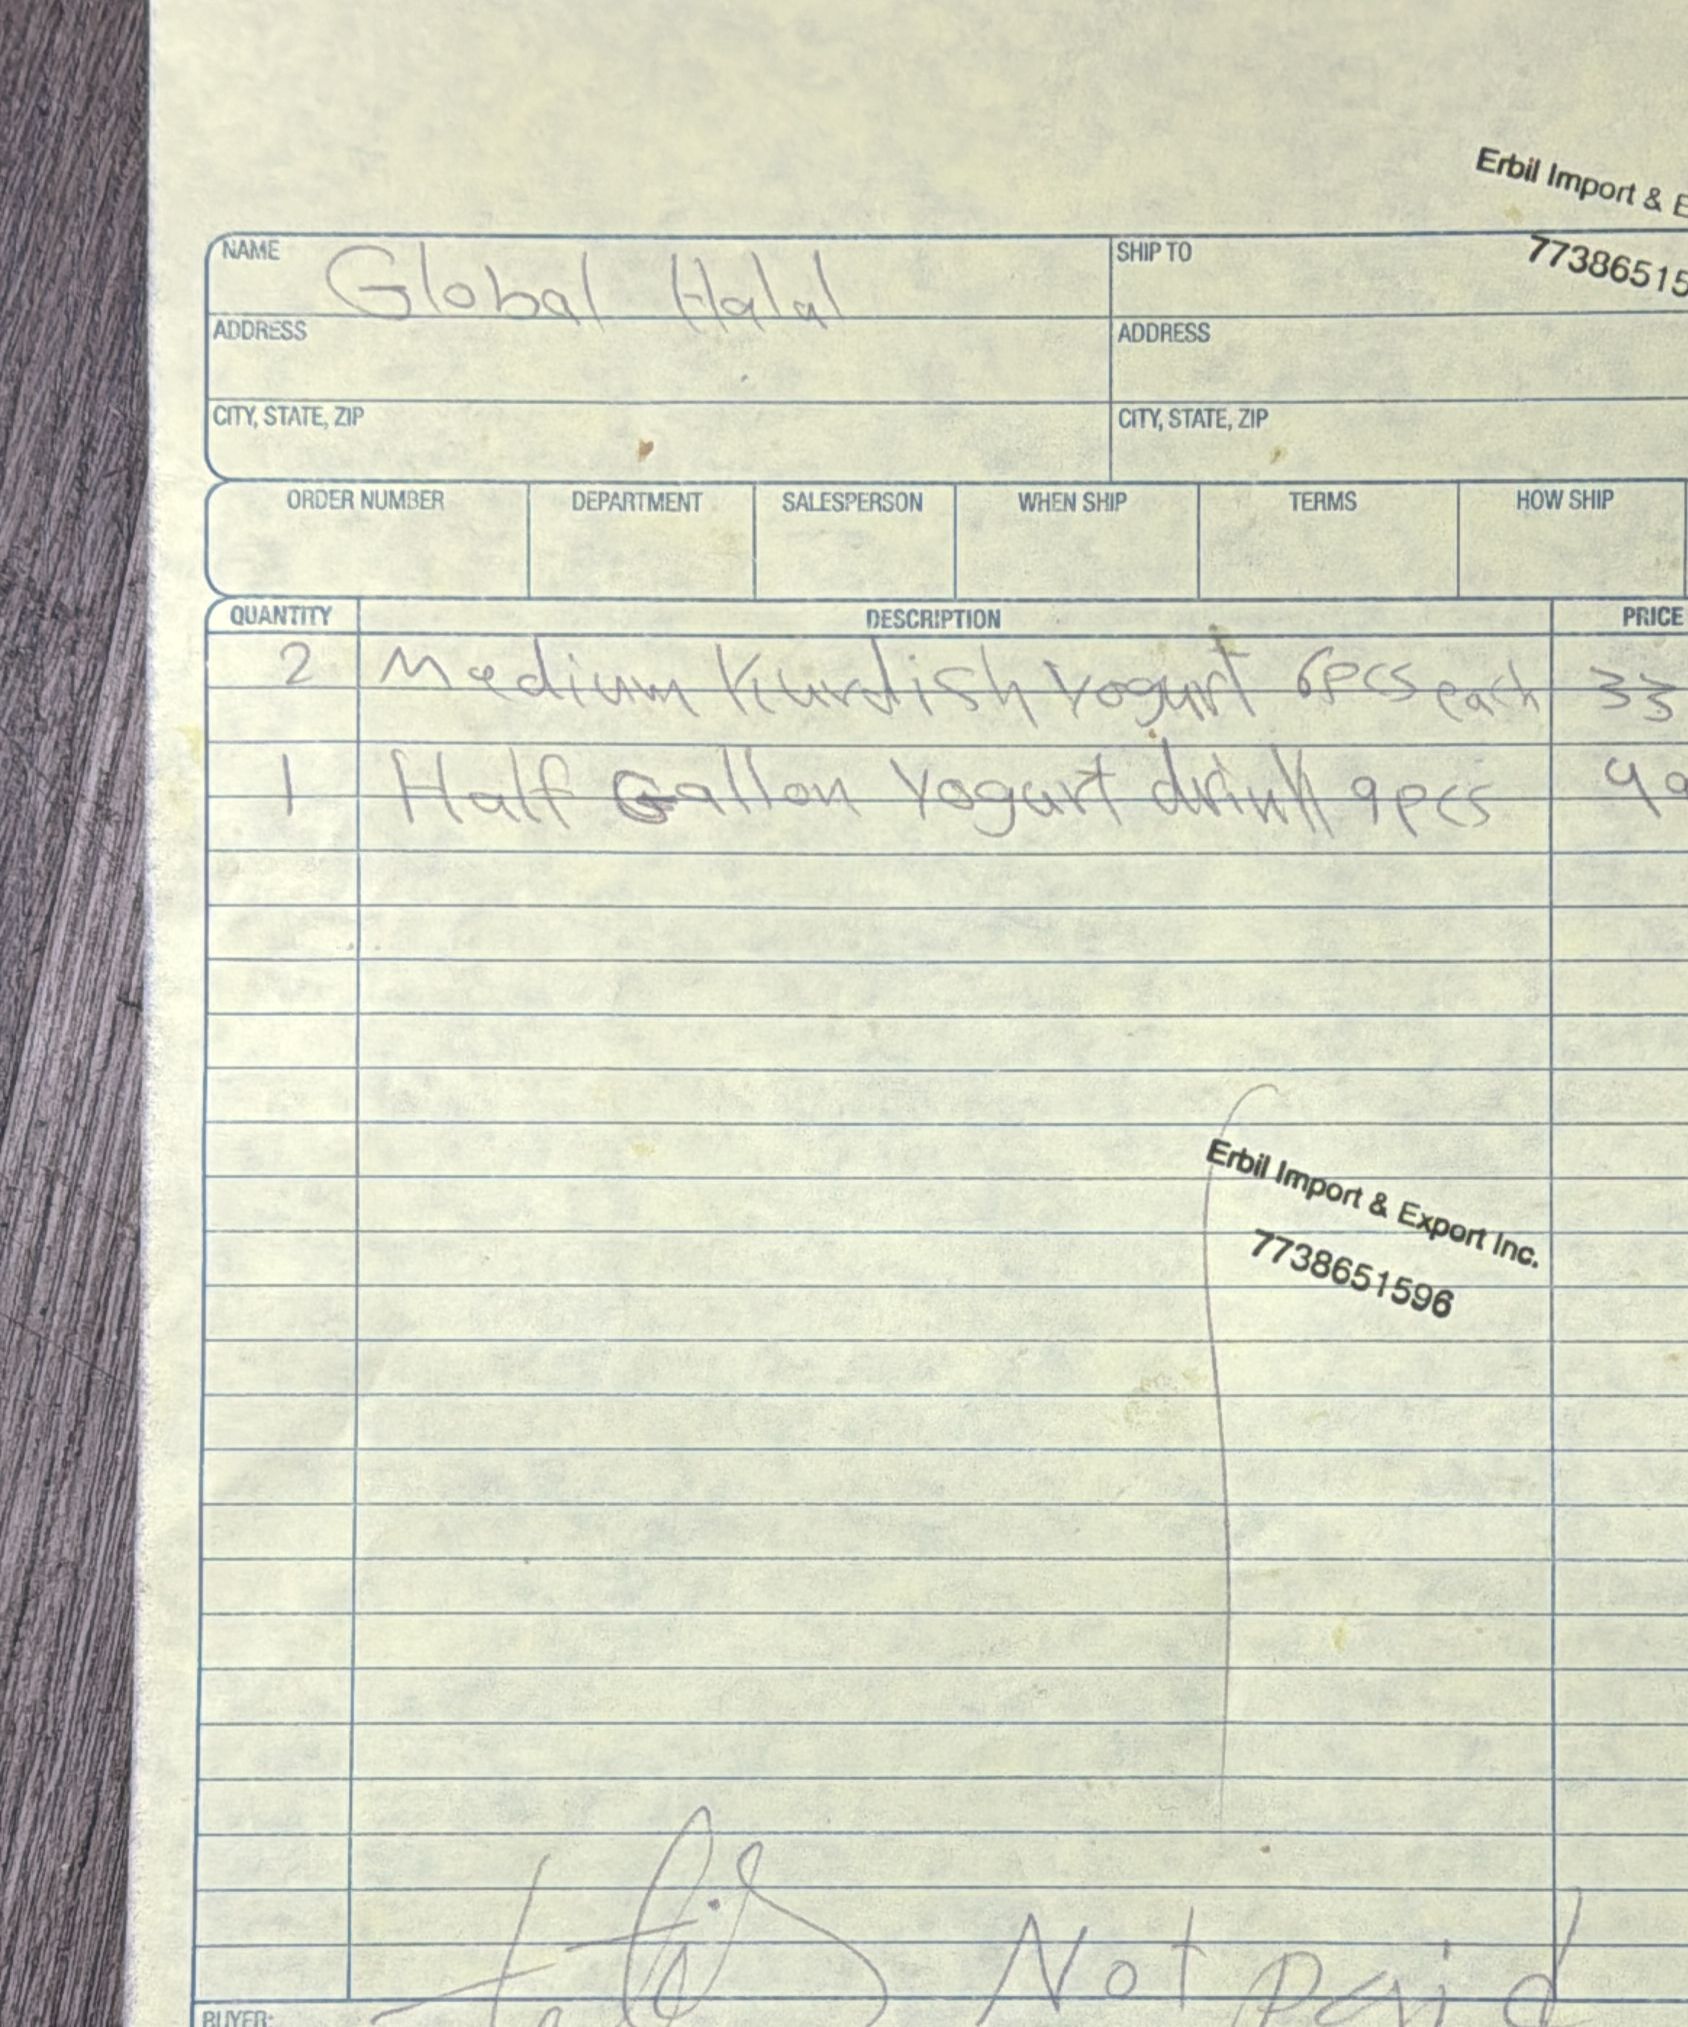 Erbil Import & E
NAME Global Halal SHIP TO 77386515
ADDRESS ADDRESS
CITY, STATE, ZIP CITY, STATE, ZIP
ORDER NUMBER DEPARTMENT SALESPERSON WHEN SHIP TERMS HOW SHIP
QUANTITY DESCRIPTION PRICE
2 Medium Kurdish Yogurt 6pcs each 33
1 Half Gallon Yogurt drink 9pcs
Erbil Import & Export Inc.
7738651596
Not paid
BUYER: